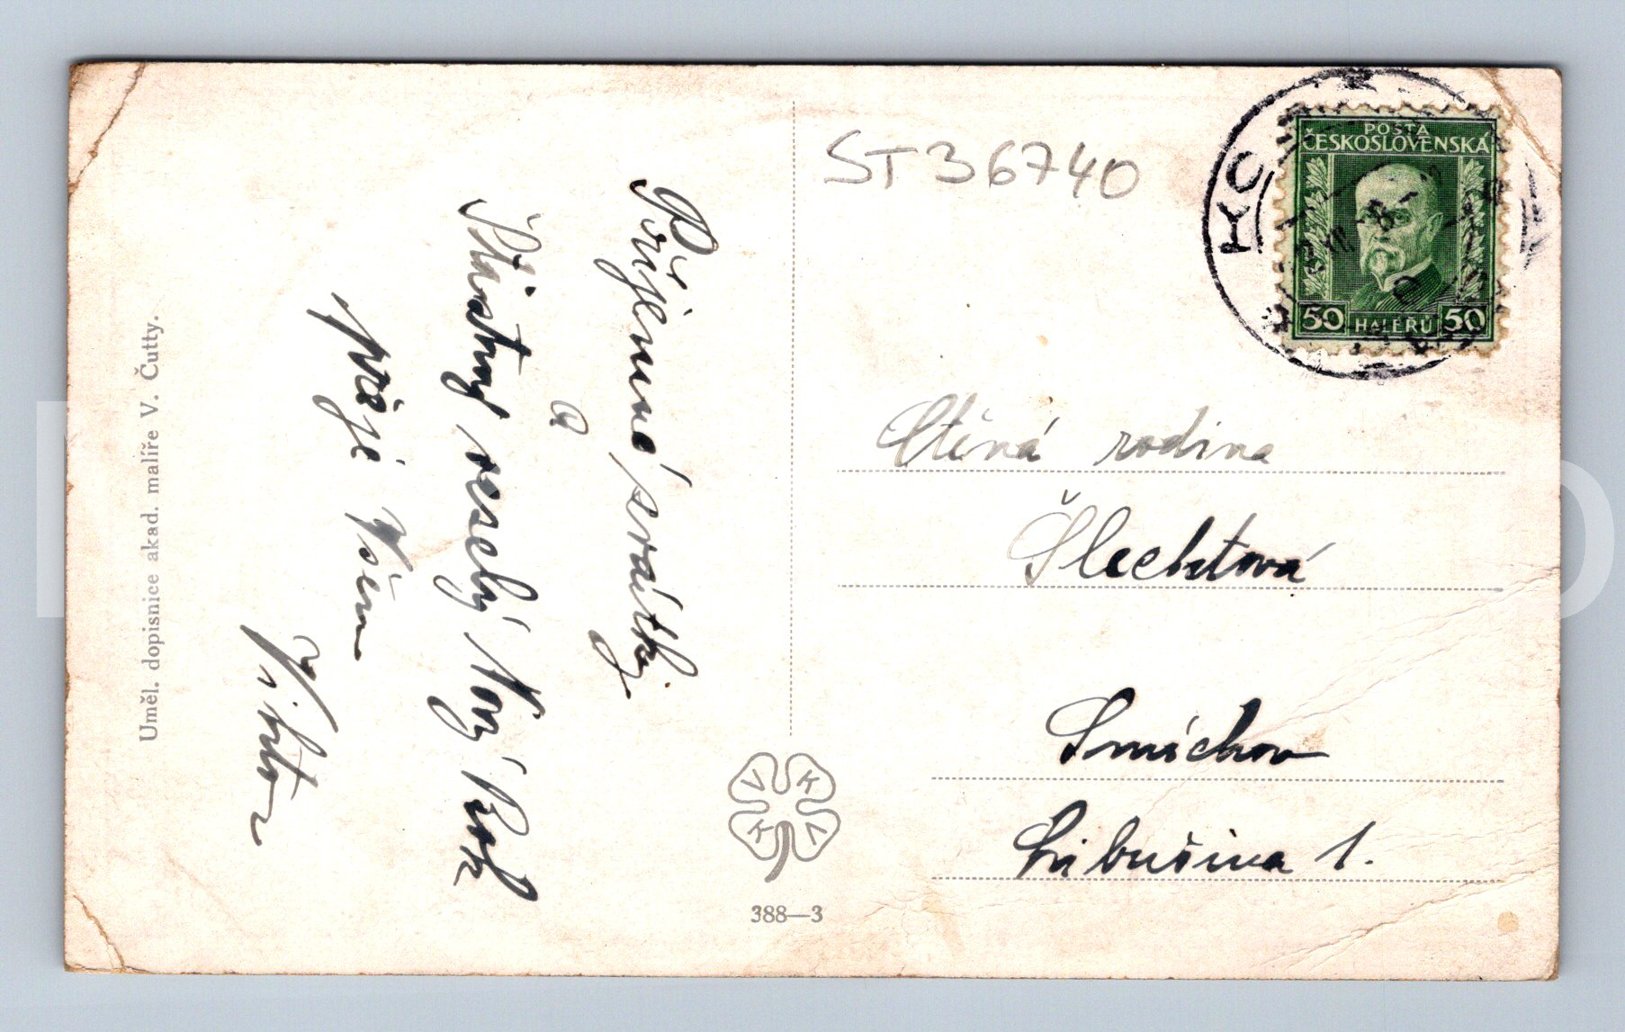 Příjemné svátky
a
Šťastný veselý Nový Rok
přeje Všem
Viktor
Uměl. dopisnice akad. malíře V. Čutty.
ST36740
POŠTA
ČESKOSLOVENSKÁ
50 HALÉŘŮ 50
Ctěná rodina
Šlechtová
Smíchov
Libušina 1.
V K
K V
388—3